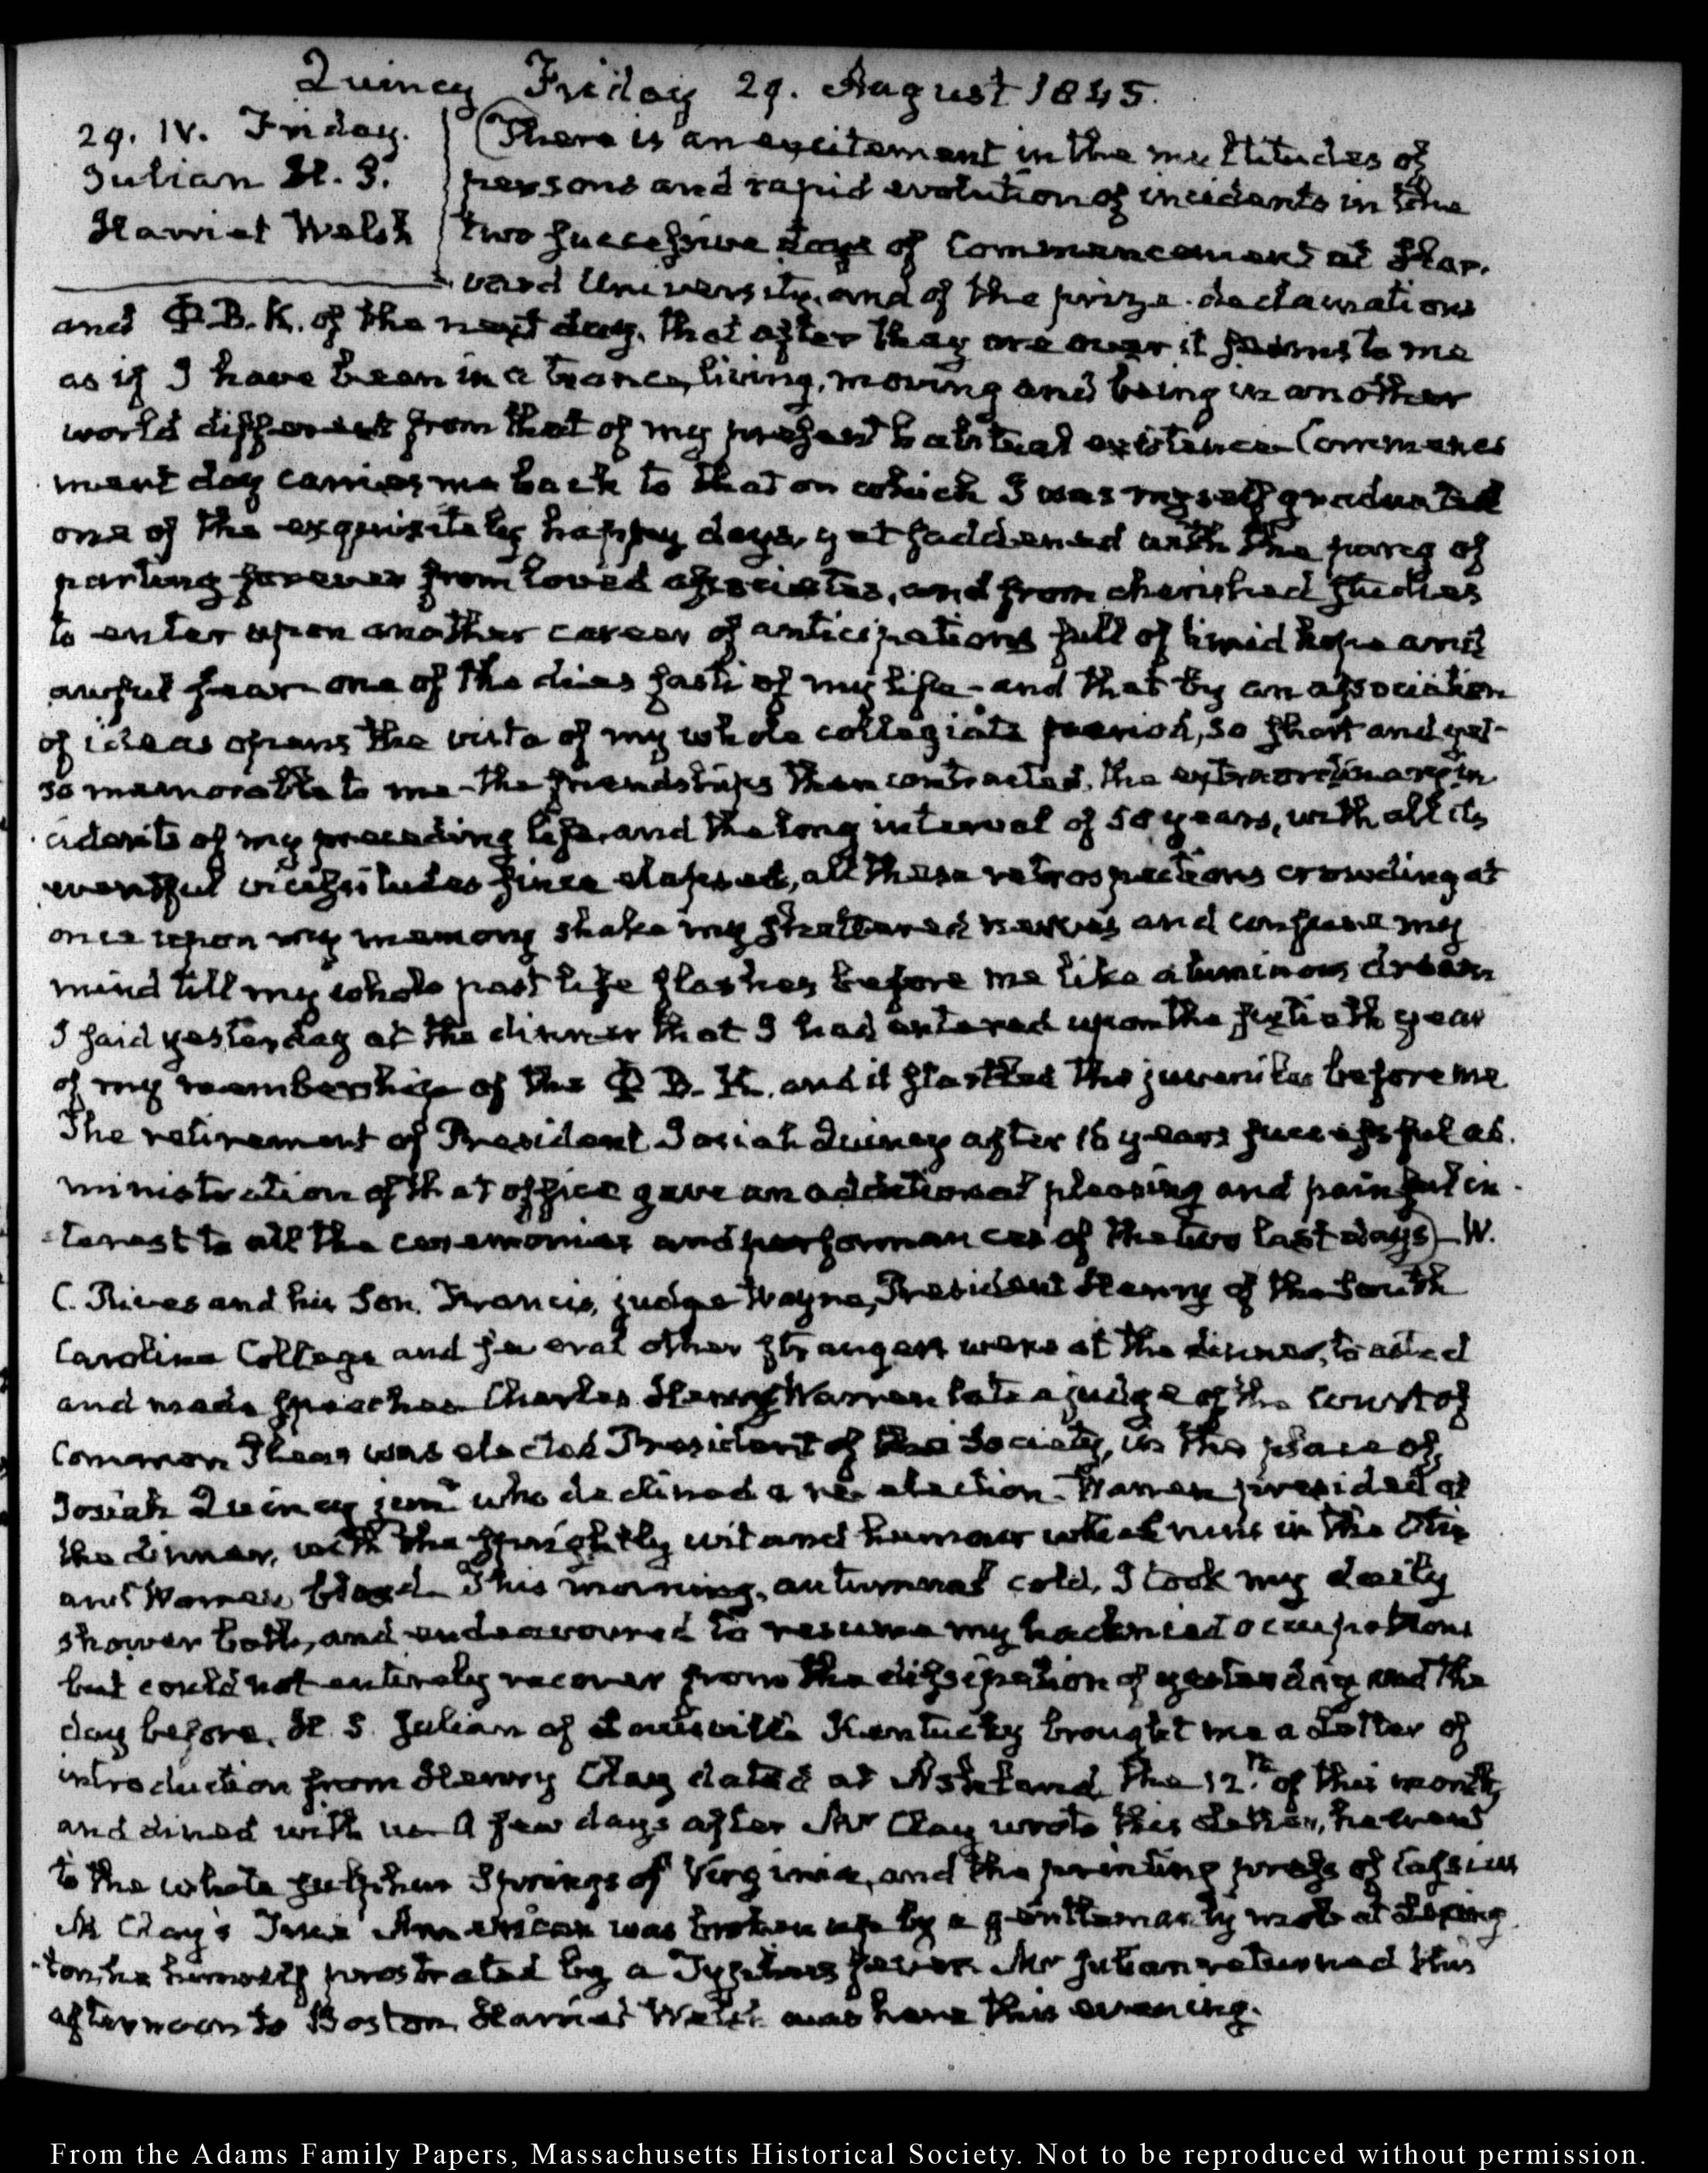 Quincy Friday 29. August 1845.
29. IV. Friday.
Julian H. S.
Harriet Welsh
(There is an excitement in the multitudes of
persons and rapid evolution of incidents in the
two successive days of Commencement at Har-
vard University, and of the prize declamations
and Φ.B.K. of the next day, that after they are over it seems to me
as if I have been in a trance, living, moving and being in another
world different from that of my present habitual existence. Commence
ment day carries me back to that on which I was myself graduated
one of the exquisitely happy days, yet saddened with the pang of
parting forever from loved associates, and from cherished studies
to enter upon another career of anticipations full of timid hope and
awful fear one of the dies fasti of my life - and that by an association
of ideas opens the vista of my whole collegiate period, so short and yet
so memorable to me - the friendships then contracted, the extraordinary in
cidents of my preceding life, and the long interval of 58 years, with all its
eventful vicissitudes since elapsed, all these retrospections crowding at
once upon my memory shake my shattered nerves and confuse my
mind till my whole past life flashes before me like a luminous dream
I said yesterday at the dinner that I had entered upon the sixtieth year
of my membership of the Φ B. K. and it startled the juveniles before me
The retirement of President Josiah Quincy after 16 years successful ad-
ministration of that office gave an additional pleasing and painful in-
terest to all the ceremonies and performances of the two last days) - W.
C. Rives and his Son, Francis, judge Wayne, President Henry of the South
Carolina College and several other strangers were at the dinner, toasted
and made speeches Charles Henry Warren late a judge of the Court of
Common Pleas was elected President of the Society, in the place of
Josiah Quincy junr who declined a re-election. Warren presided at
the dinner, with the sprightly wit and humour which runs in the Otis
and Warren blood. This morning, autumnal cold, I took my daily
shower bath, and endeavoured to resume my hacknied occupations
but could not entirely recover from the dissipation of yesterday and the
day before. H. S. Julian of Louisville Kentucky brought me a Letter of
introduction from Henry Clay dated at Ashland the 12.th of this month,
and dined with us. A few days after Mr Clay wrote this Letter, he went
to the white sulphur Springs of Virginia, and the printing press of Cassius
M Clay's True American was broken up by a gentlemanly mob at Lexing
-ton, he himself prostrated by a Typhus fever. Mr Julian returned this
afternoon to Boston. Harriet Welsh was here this evening.
From the Adams Family Papers, Massachusetts Historical Society. Not to be reproduced without permission.